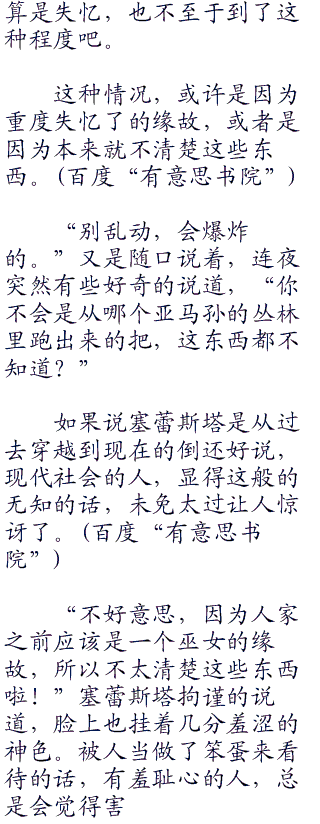 算是失忆，也不至于到了这
种程度吧。
这种情况，或许是因为
重度失忆了的缘故，或者是
因为本来就不清楚这些东
西。(百度“有意思书院”)
“别乱动，会爆炸
的。”又是随口说着，连夜
突然有些好奇的说道，“你
不会是从哪个亚马孙的丛林
里跑出来的把，这东西都不
知道？”
如果说塞蕾斯塔是从过
去穿越到现在的倒还好说，
现代社会的人，显得这般的
无知的话，未免太过让人惊
讶了。(百度“有意思书
院”)
“不好意思，因为人家
之前应该是一个巫女的缘
故，所以不太清楚这些东西
啦！”塞蕾斯塔拘谨的说
道，脸上也挂着几分羞涩的
神色。被人当做了笨蛋来看
待的话，有羞耻心的人，总
是会觉得害